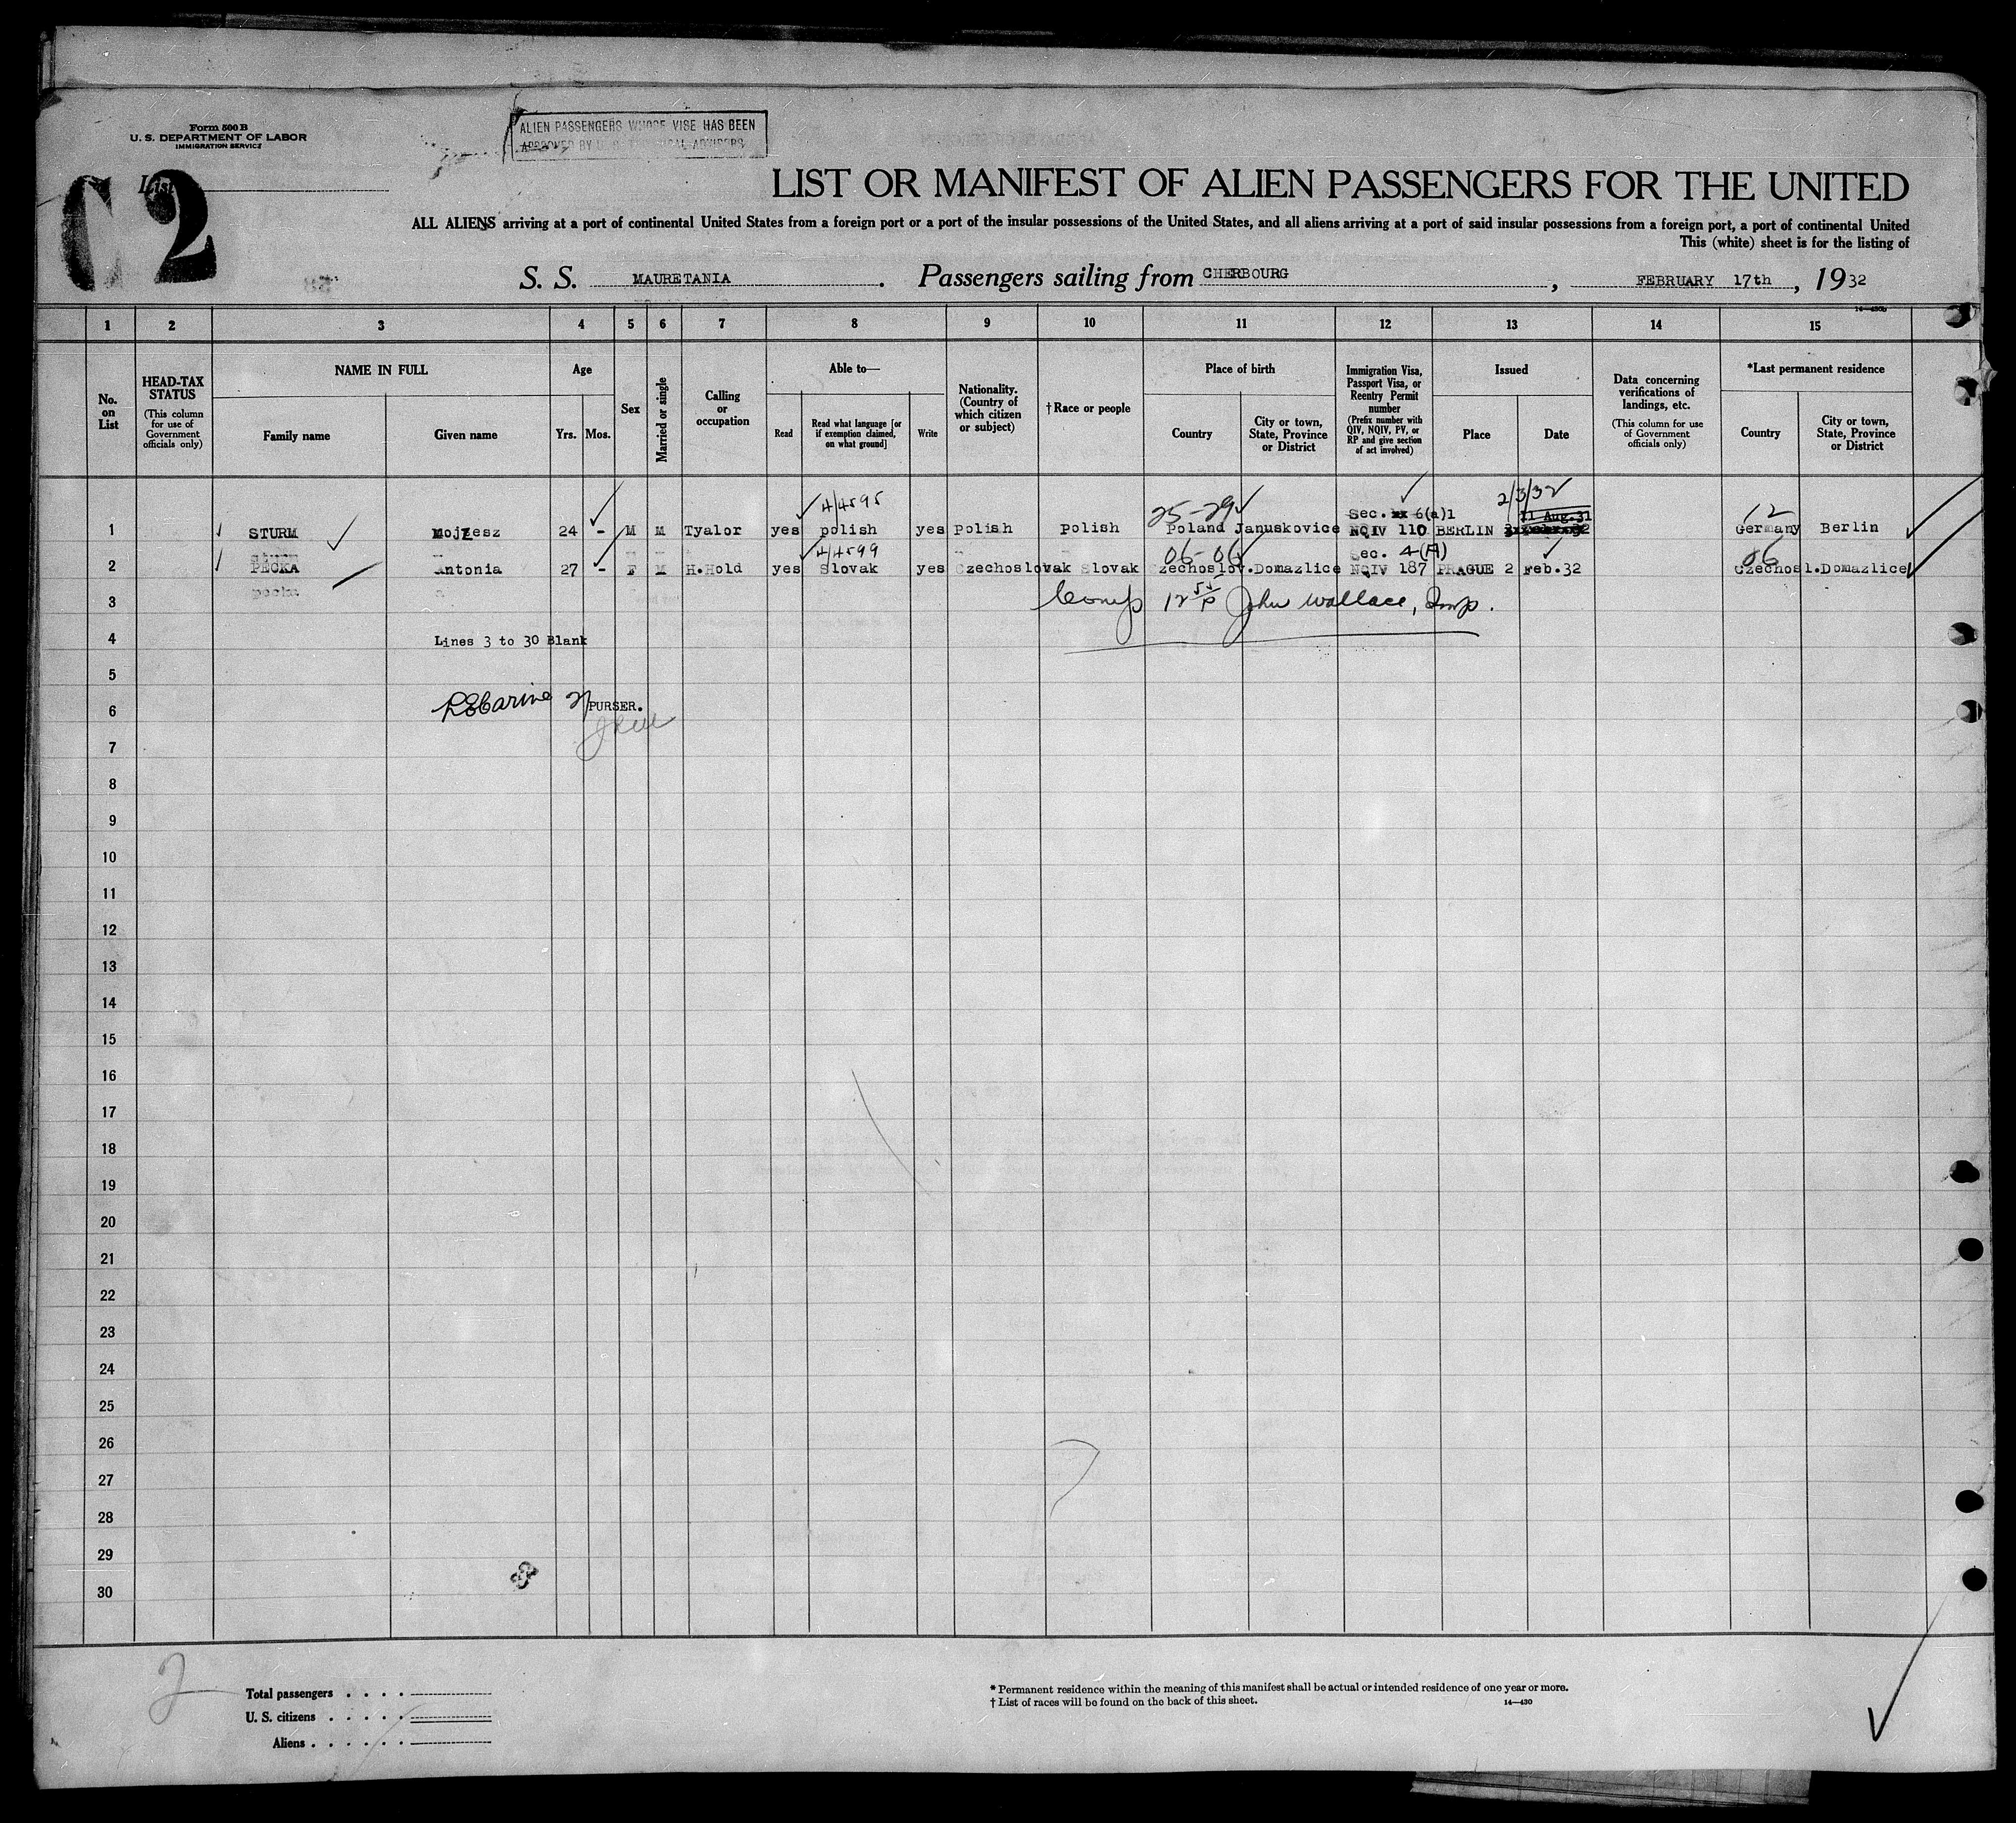 Form 500 B
U. S. DEPARTMENT OF LABOR
IMMIGRATION SERVICE
ALIEN PASSENGERS WHOSE VISE HAS BEEN
APPROVED BY U. S. ADVISORS
List
C 2
LIST OR MANIFEST OF ALIEN PASSENGERS FOR THE UNITED
ALL ALIENS arriving at a port of continental United States from a foreign port or a port of the insular possessions of the United States, and all aliens arriving at a port of said insular possessions from a foreign port, a port of continental United
This (white) sheet is for the listing of
S. S. MAURETANIA. Passengers sailing from CHERBOURG, FEBRUARY 17th, 1932
14—430b
1 2 3 4 5 6 7 8 9 10 11 12 13 14 15
No. on List
HEAD-TAX STATUS
(This column for use of Government officials only)
NAME IN FULL
Family name
Given name
Age
Yrs.
Mos.
Sex
Married or single
Calling or occupation
Able to—
Read
Read what language [or if exemption claimed, on what ground]
Write
Nationality. (Country of which citizen or subject)
† Race or people
Place of birth
Country
City or town, State, Province or District
Immigration Visa, Passport Visa, or Reentry Permit number
(Prefix number with QIV, NQIV, PV, or RP and give section of act involved)
Issued
Place
Date
Data concerning verifications of landings, etc.
(This column for use of Government officials only)
*Last permanent residence
Country
City or town, State, Province or District
4/4595 25-29 Sec. 6(a)1 2/3/32 11 Aug.31 12
1 STURM Mojzesz 24 - M M Tyalor yes polish yes Polish polish Poland Januskovice NQIV 110 BERLIN Germany Berlin
sturm 4/4599 06-06 Sec. 4(A) 06
2 PECKA Antonia 27 - F M H.Hold yes Slovak yes Czechoslovak Slovak Czechoslov. Domazlice NQIV 187 PRAGUE 2 Feb.32 Czechosl. Domazlice
pecka
3 Comp 12 55/P John Wallace, Insp.
4 Lines 3 to 30 Blank
5
6 PURSER.
7
8
9
10
11
12
13
14
15
16
17
18
19
20
21
22
23
24
25
26
27
28
29
30
2
Total passengers
U. S. citizens
Aliens
* Permanent residence within the meaning of this manifest shall be actual or intended residence of one year or more.
† List of races will be found on the back of this sheet.
14—430